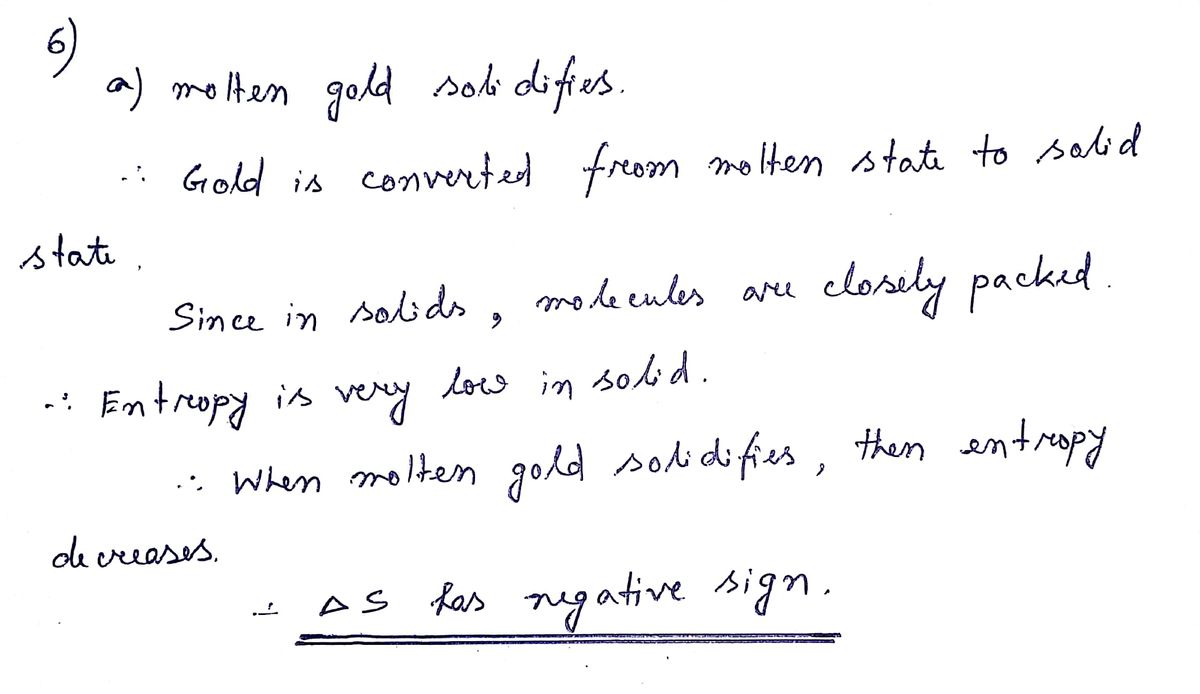 6)
a) molten gold solidifies.
∴ Gold is converted from molten state to solid
state.
Since in solids, molecules are closely packed.
∴ Entropy is very low in solid.
∴ When molten gold solidifies, then entropy
decreases.
∴ ΔS has negative sign.